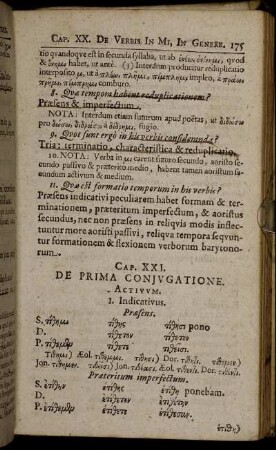 CAP. XX. DE VERBIS IN MI, IN GENERE. 175
tio quandoque est in secunda syllaba, ut ab quod
& ut ante. (3) Interdum producitur reduplicatio
interposito μ, ut à πλάω, πλῆμι, πίμπλημι impleo, à
πρῆμι, πίμπρημι comburo.
8. Quæ tempora habent reduplicationem?
Præsens & imperfectum.
NOTA: Interdum etiam futurum apud poëtas, ut διδώσω
pro δώσω, à δίδημι, fugio.
9. Quot sunt ergo in his verbis consideranda?
Tria: terminatio, characteristica & reduplicatio.
10. NOTA: Verba in μι carent futuro secundo, aoristo se-
cundo passivo & præterito medio, habent tamen aoristum se-
cundum activum & medium.
11. Quæ est formatio temporum in his verbis?
Præsens indicativi peculiarem habet formam & ter-
minationem, præteritum imperfectum, & aoristus
secundus, nec non præsens in reliquis modis inste-
ctuntur more aoristi passivi, reliqua tempora sequun-
tur formationem & flexionem verborum barytono-
rum.
CAP. XXI.
DE PRIMA CONJVGATIONE.
ACTIVVM.
1. Indicativus.
Præsens.
S. τίθημι τίθης τίθησι pono
D. τίθετον τίθετον
P. τίθεμεν τίθετε τιθεῖσι.
Præteritum imperfectum.
S. ἐτίθην ἐτίθης ἐτίθη ponebam.
D. ἐτίθετον ἐτιθέτην
P. ἐτίθεμεν ἐτίθετε ἐτίθεσαν.